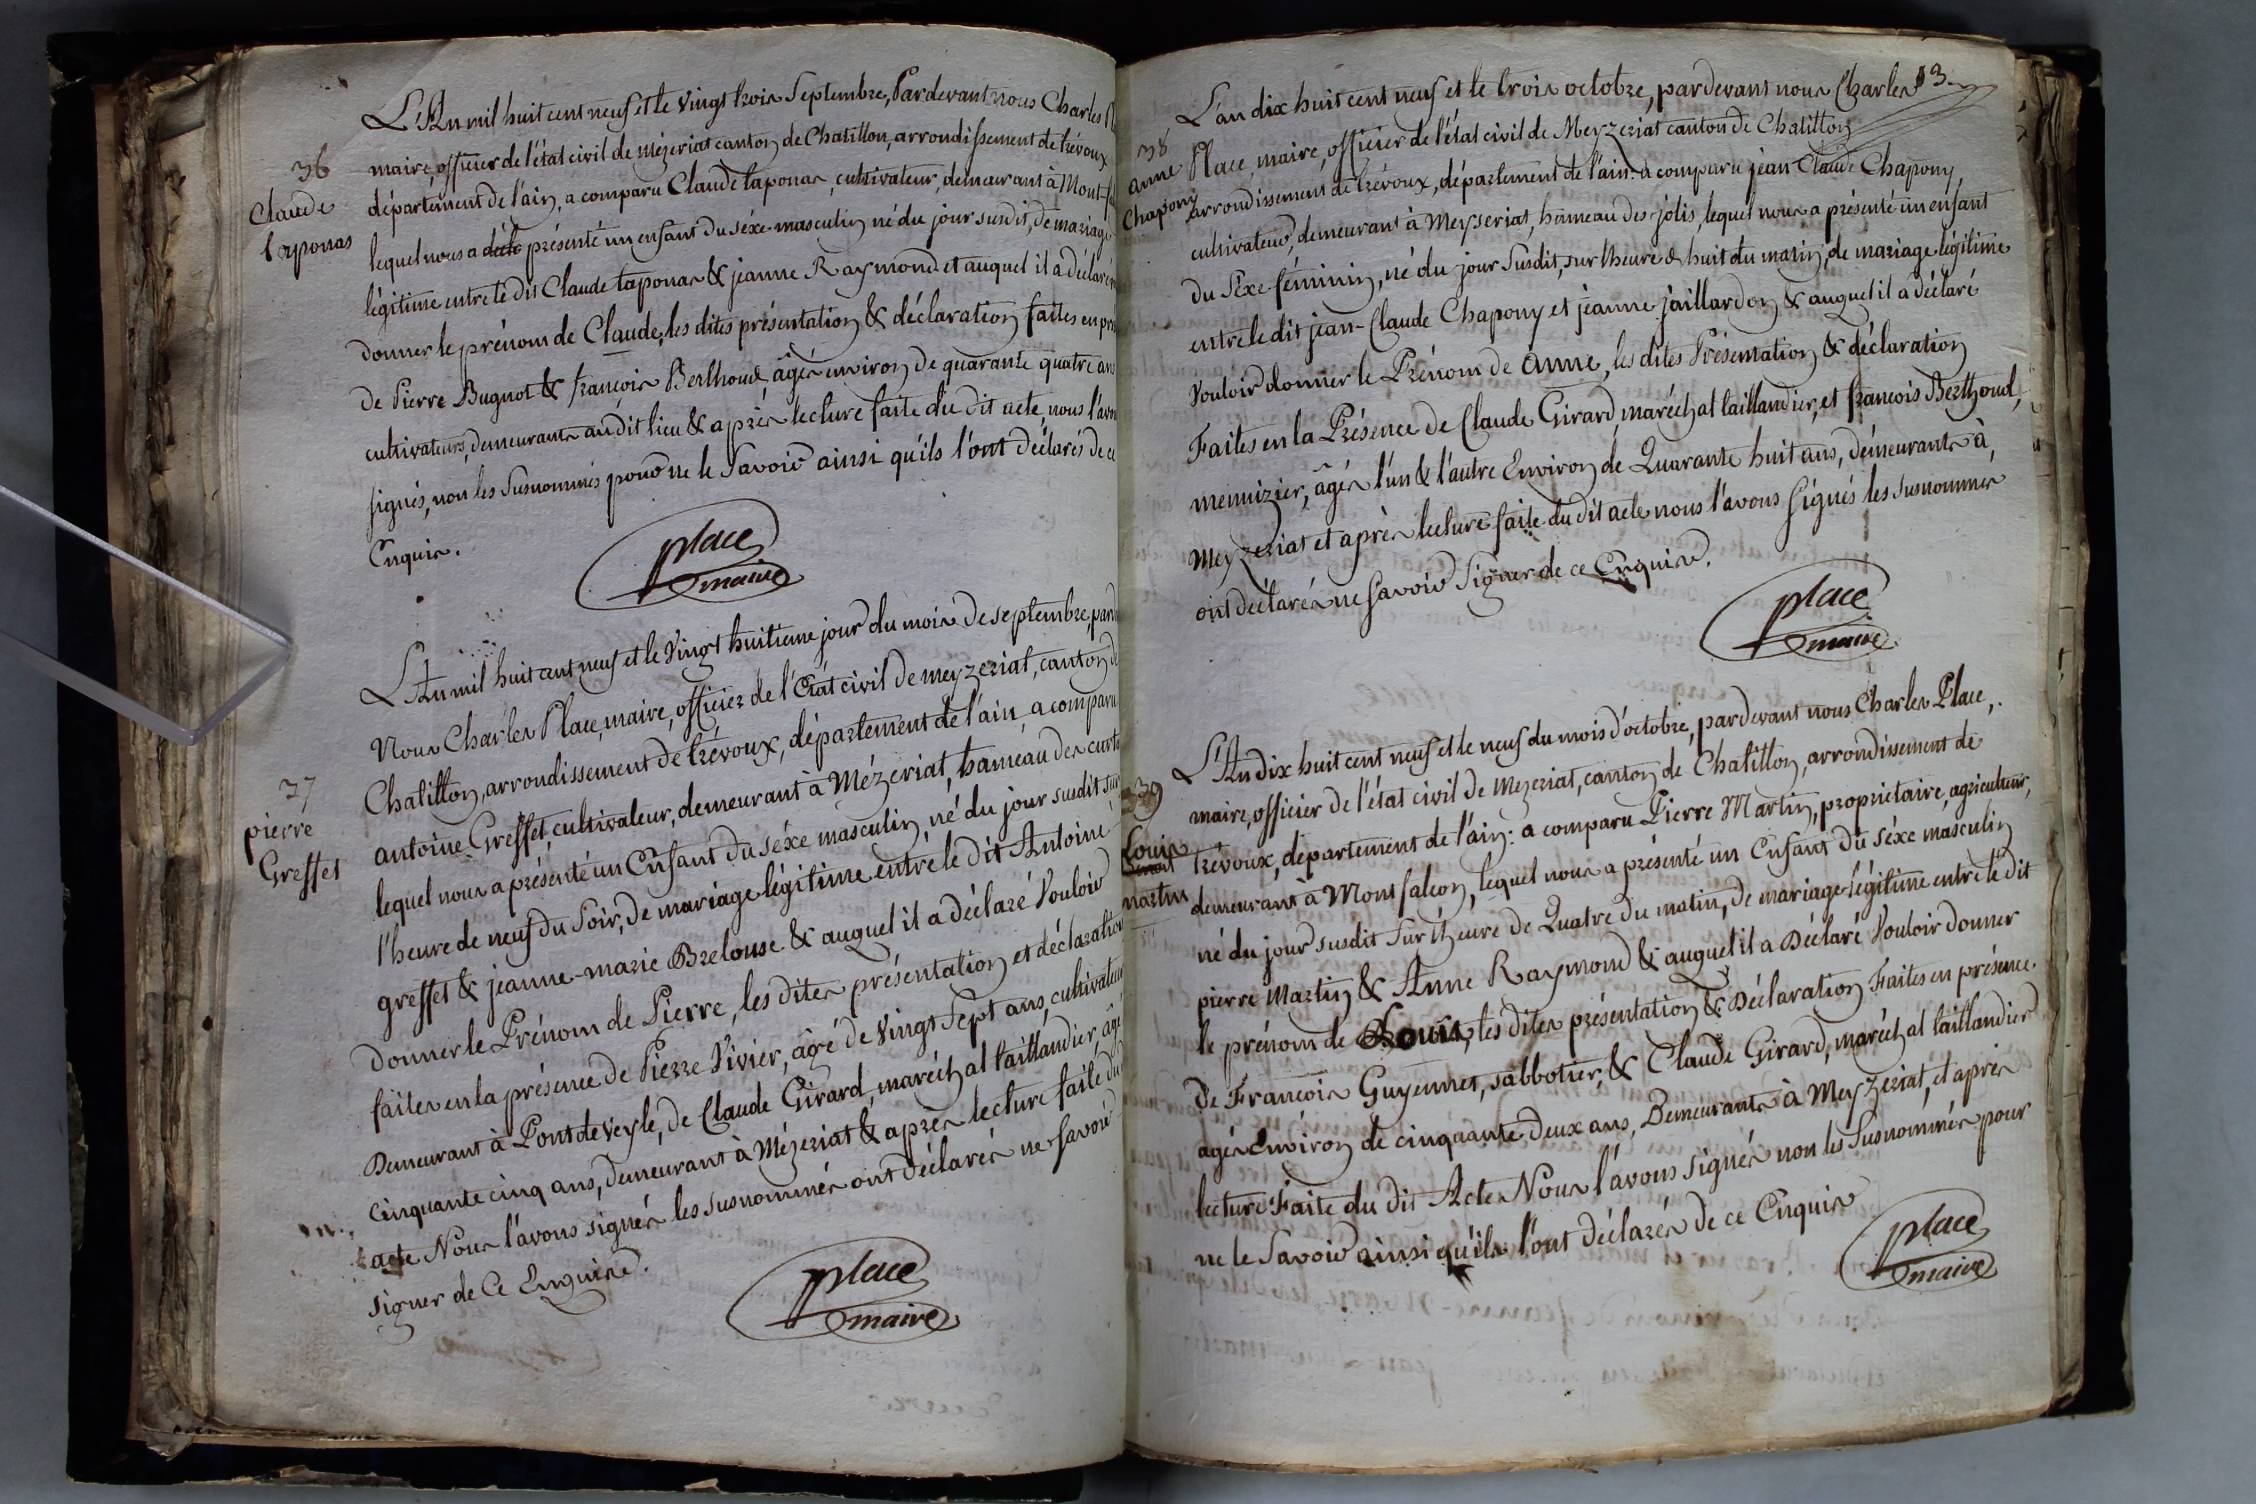 36
Claude
taponas
L'An mil huit cent neuf et le Vingt trois Septembre, Pardevant nous Charles
maire, officier de l'état civil de mézeriat canton de Chatillon, arrondissement de trévoux
département de l'ain, a comparu Claude taponas, cultivateur, demeurant à Mont-fa
lequel nous a décla présenté un enfant du séxe masculin né du jour susdit, de mariage
légitime entre le dit Claude taponas & jeanne Raymond et auquel il a déclaré
donner le prénom de Claude, les dites présentation & déclaration faites en pré
de Pierre Bugnot & françois Berthoud, âgés environ de quarante quatre ans
cultivateurs, demeurants au dit lieu & après lecture faite du dit acte, nous l'avons
signés, non les Susnommés pour ne le Savoir ainsi qu'ils l'ont déclarés de ce
Enquis.
place
maire
37
pierre
Greffet
L'An mil huit cent neuf et le Vingt huitieme jour du mois de septembre, pard
Nous Charles Place, maire, officier de l'Etat civil de meyzeriat, canton de
Chatillon, arrondissement de trévoux, département de l'ain, a comparu
antoine Greffet, cultivateur, demeurant à Mézeriat, hameau des curt
lequel nous a présenté un Enfant du séxe masculin, né du jour susdit sur
l'heure de neuf du Soir, de mariage légitime entre le dit Antoine
greffet & jeanne-marie Brelouse & auquel il a déclaré Vouloir
donner le Prénom de Pierre, les dites présentation et déclaration
faites en la présence de Pierre Vivier, âgé de Vingt Sept ans, cultivateur
Demeurant à Pont de Veyle, de Claude Girard, maréchal taillandier, âgé
cinquante cinq ans, demeurant à Mézeriat & après lecture faite du
acte Nous l'avons signés les susnommés ont déclarés ne Savoir
signer de Ce Enquise.
place
maire
13
38
anne
Chapony
L'an dix huit cent neuf et le trois octobre, pardevant nous Charles
Place, maire, officier de l'état civil de Meyzeriat canton de Chatillon
arrondissement de trévoux, département de l'ain: a comparu jean Claude Chapony,
cultivateur, demeurant à Meyseriat, hameau des jolis, lequel nous a présenté un enfant
du Sexe féminin, né du jour Susdit, sur l'heure de huit du matin, de mariage légitime
entre le dit jean-Claude Chapony et jeanne jaillardon & auquel il a déclaré
Vouloir donner le Prénom de Anne, les dites Présentation & déclaration
Faites en la Présence de Claude Girard, maréchal taillandier, et françois Berthoud,
menuizier, âgés l'un & l'autre Environ de Quarante huit ans, demeurants à
Meyzeriat et après lecture faite du dit acte nous l'avons Signés les susnommés
ont déclarés ne Savoir Signer de ce Enquise.
place
maire
39
Louis
martin
L'An dix huit cent neuf et le neuf du mois d'octobre, pardevant nous Charles Place,
maire, officier de l'état civil de Mezeriat, canton de Chatillon, arrondissement de
trévoux, département de l'ain: a comparu Pierre Martin, propriétaire, agriculteur,
demeurant à Montfalcon, lequel nous a présenté un Enfant du séxe masculin
né du jour susdit sur l'heure de Quatre du matin, de mariage légitime entre le dit
pierre Martin & Anne Raymond & auquel il a Déclaré Vouloir donner
le prénom de Louis, les dites présentation & Déclaration Faites en présence
de Francois Guyennet, sabbotier, & Claude Girard, maréchal taillandier
agés Environ de cinquante deux ans, Demeurants à Meyzeriat, et après
lecture Faite du dit Acte Nous l'avons signés non les Susnommés pour
ne le Savoir ainsi qu'ils l'ont déclarés de ce Enquis
place
maire